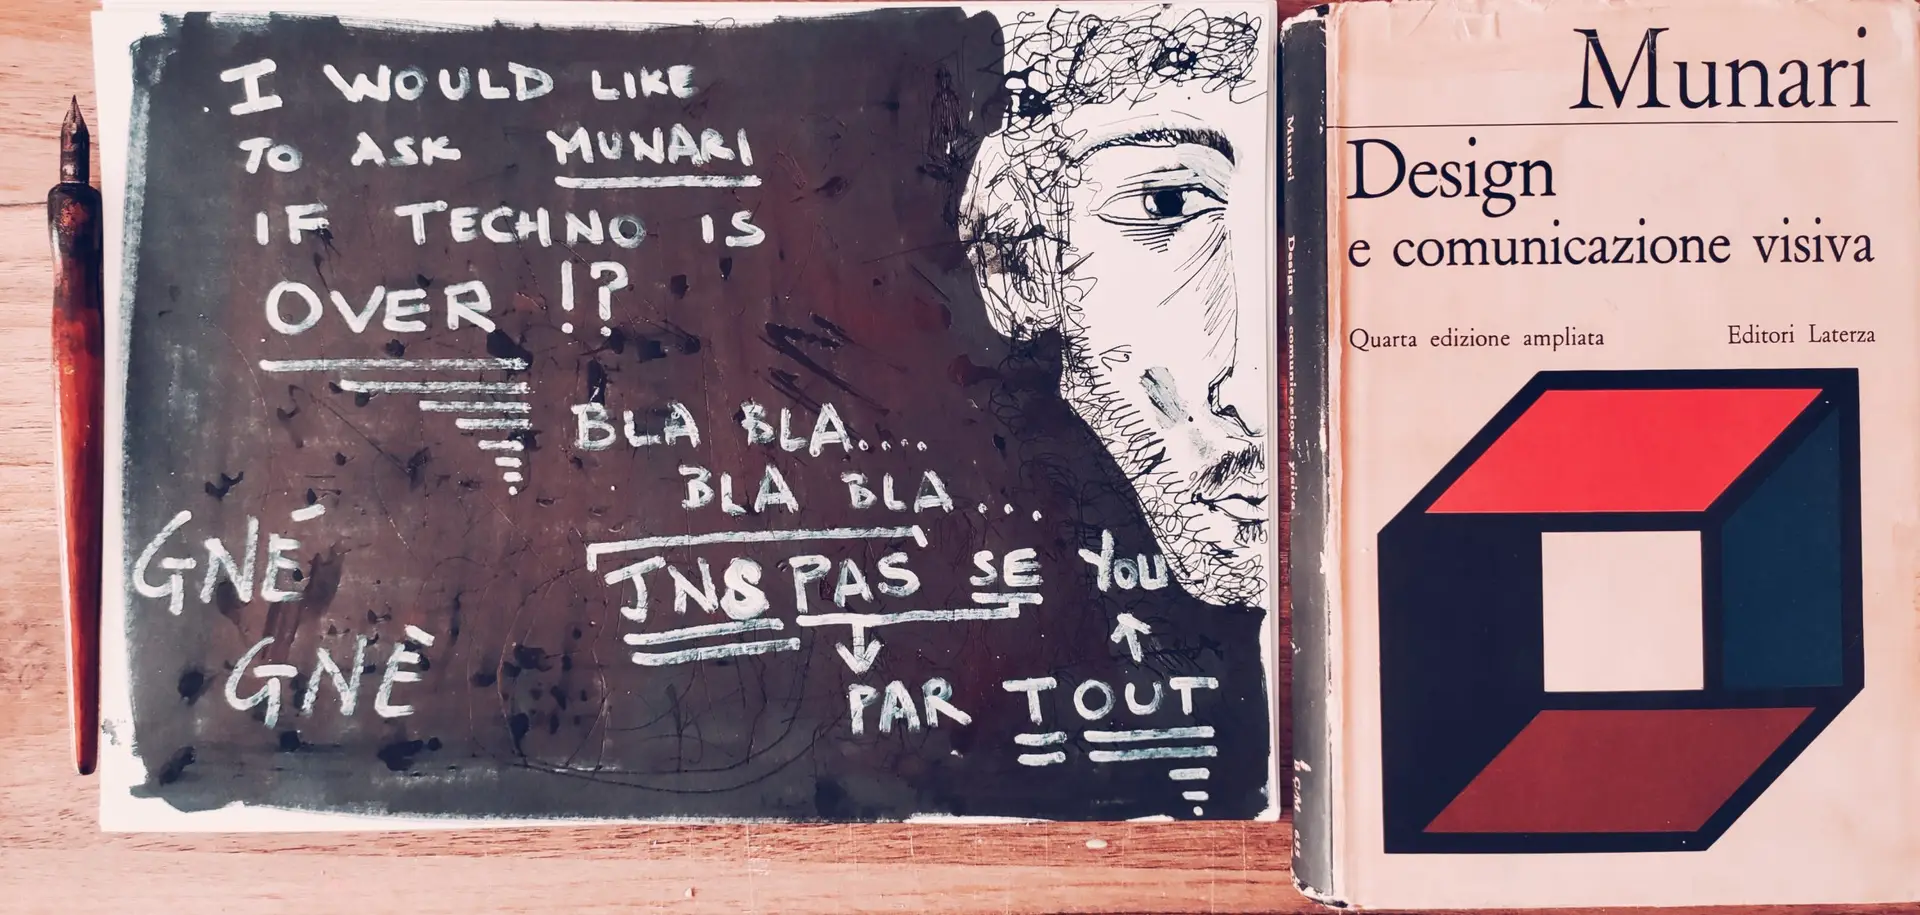 I WOULD LIKE
TO ASK MUNARI
IF TECHNO IS
OVER !?
BLA BLA....
BLA BLA...
GNÉ
JNS PAS SE YOU
GNÈ
PAR TOUT
Munari
Design
e comunicazione visiva
Quarta edizione ampliata
Editori Laterza
Munari Design e comunicazione visiva